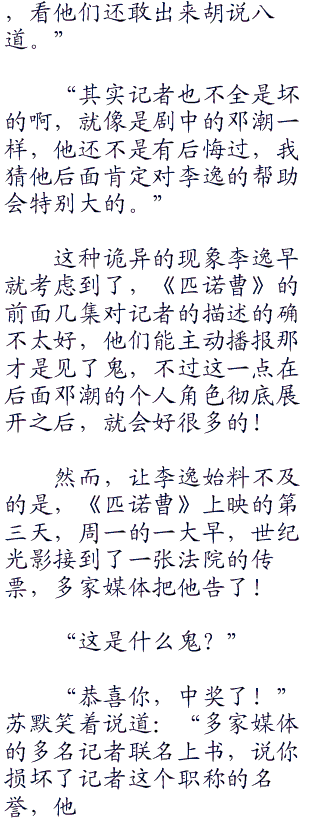 ，看他们还敢出来胡说八
道。”
“其实记者也不全是坏
的啊，就像是剧中的邓潮一
样，他还不是有后悔过，我
猜他后面肯定对李逸的帮助
会特别大的。”
这种诡异的现象李逸早
就考虑到了，《匹诺曹》的
前面几集对记者的描述的确
不太好，他们能主动播报那
才是见了鬼，不过这一点在
后面邓潮的个人角色彻底展
开之后，就会好很多的！
然而，让李逸始料不及
的是，《匹诺曹》上映的第
三天，周一的一大早，世纪
光影接到了一张法院的传
票，多家媒体把他告了！
“这是什么鬼？”
“恭喜你，中奖了！”
苏默笑着说道：“多家媒体
的多名记者联名上书，说你
损坏了记者这个职称的名
誉，他